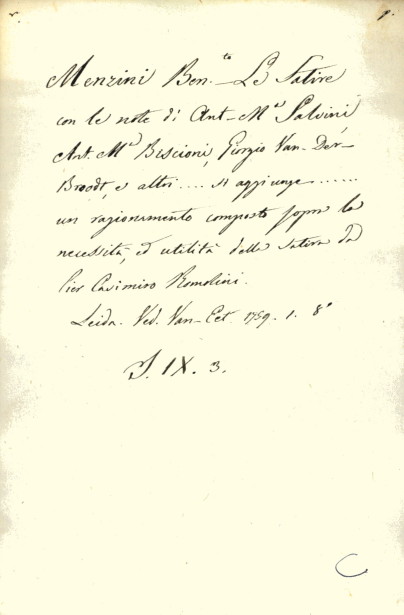 Menzini Ben.to Le Satire
con le note di Ant. M.a Salvini
Ant. M.a Biscioni, Giorgio Van-Der-
Broodt, e altri .... si aggiunge ......
un ragionamento composto sopra la
necessità, ed utilità della Satira da
Pier Casimiro Romolini.
Leida. Ved. Van-Eet. 1759. 1. 8°
J. IX. 3.